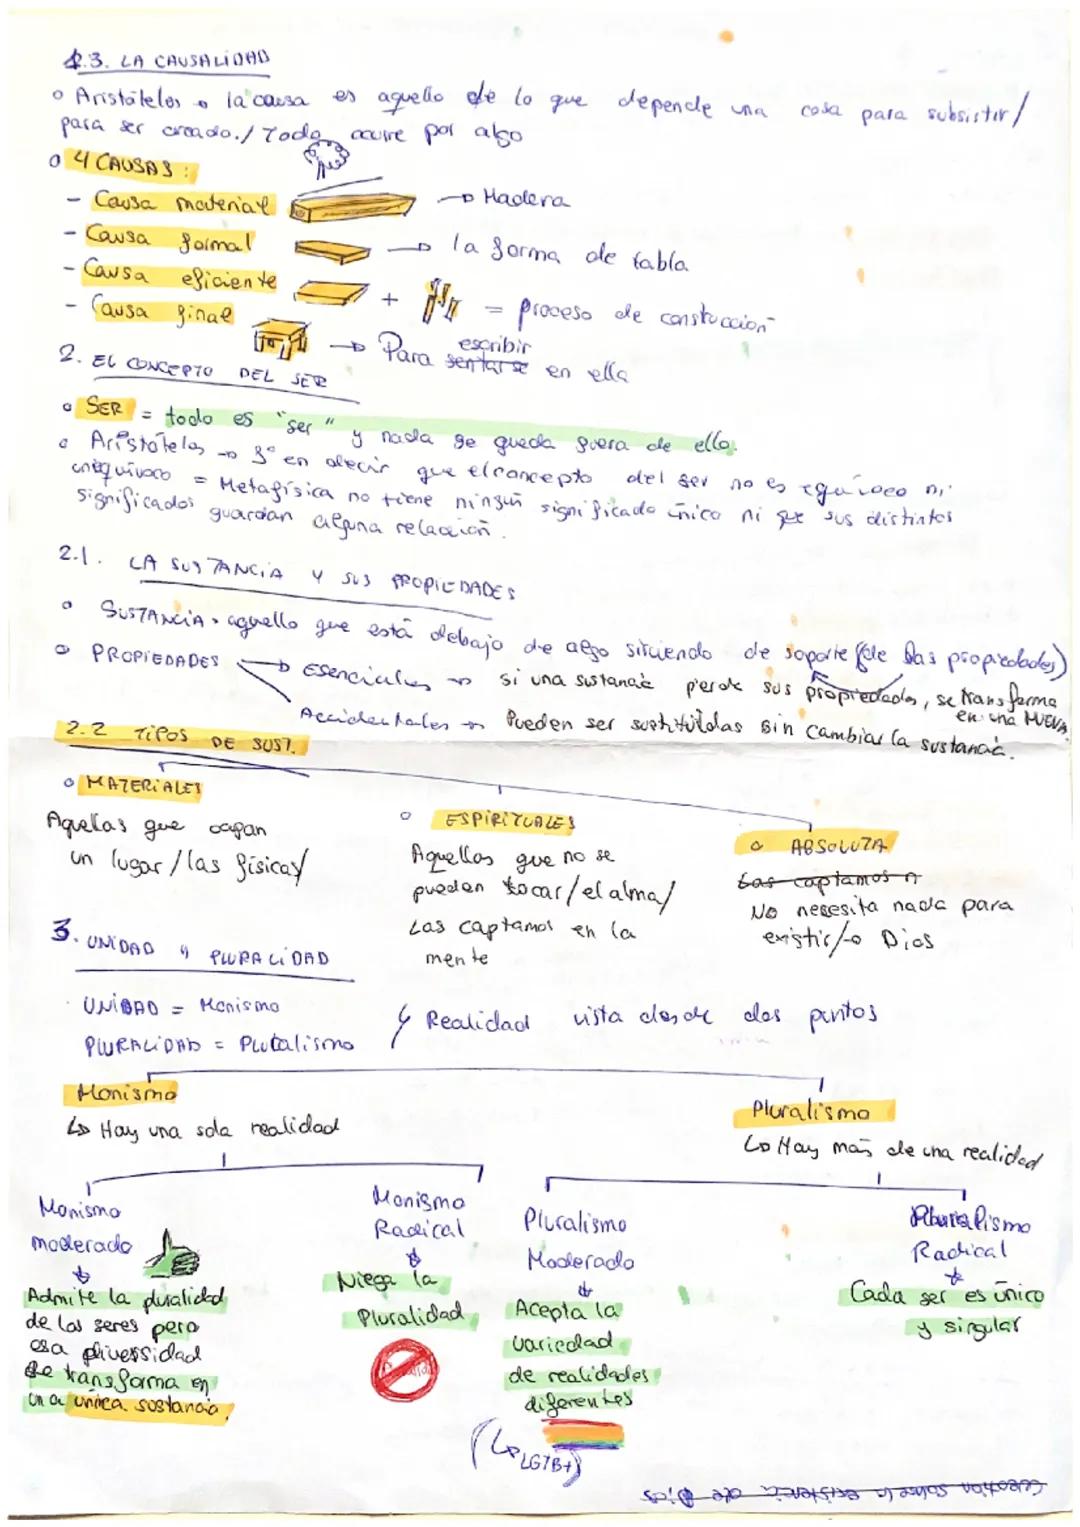 1.3. LA CAUSALIDAD
o Aristóteles → la causa es aquello de lo que depende una cosa para subsistir/
para ser creado./ Todo ocurre por algo
o 4 CAUSAS:
- Causa material → Madera
- Causa formal → la forma de tabla
- Causa eficiente + = proceso de construccion
- Causa final → Para sentarse escribir en ella
2. EL CONCEPTO DEL SER
o SER = todo es "ser" y nada se queda fuera de ello.
o Aristóteles → 3º en decir que el concepto del ser no es equívoco ni
unequívoco = Metafísica no tiene ningún significado único ni que sus distintos
significados guardan alguna relación.
2.1. LA SUSTANCIA Y SUS PROPIEDADES
o SUSTANCIA. aquello que está debajo de algo sirviendo de soporte (de las propiedades)
o PROPIEDADES → Esenciales → si una sustancia pierde sus propiedades, se transforma
en una NUEVA.
Accidentales → Pueden ser sustituidas sin cambiar la sustancia.
2.2 TIPOS DE SUST.
o MATERIALES
Aquellas que ocupan
un lugar/las físicas/
o ESPIRITUALES
Aquellas que no se
pueden tocar/el alma/
Las captamos en la
mente
o ABSOLUTA
Las captamos n
No necesita nada para
existir/→ Dios
3. UNIDAD y PLURALIDAD
UNIDAD = Monismo
PLURALIDAD = Pluralismo
Realidad vista desde dos puntos
Monismo
↳ Hay una sola realidad
Pluralismo
↳ Hay más de una realidad
Monismo
moderado
↓
Admite la pluralidad
de los seres pero
esa diversidad
se transforma en
una única sustancia.
Monismo
Radical
↓
Niega la
Pluralidad
Pluralismo
Moderado
↓
Acepta la
variedad
de realidades
diferentes
(↳ LGTB+)
Pluralismo
Radical
↓
Cada ser es único
y singular
Cuestion sobre la existencia de Dios